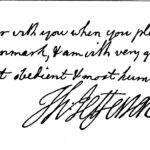 with you when you
& am with very
obedient & most hum
Th: Jefferson